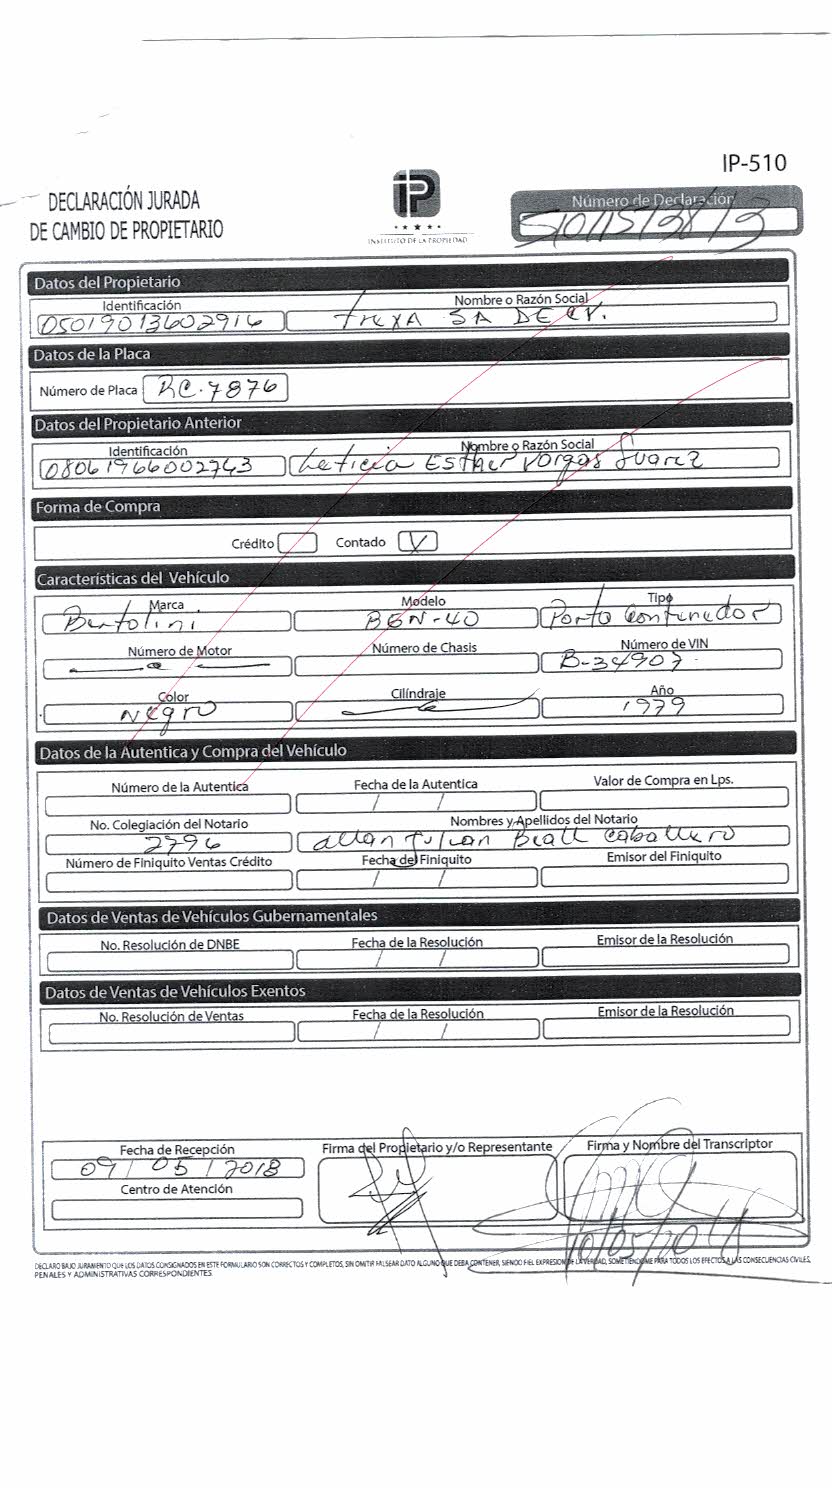 IP-510
DECLARACIÓN JURADA
DE CAMBIO DE PROPIETARIO
IP
INSTITUTO DE LA PROPIEDAD
Número de Declaración
Datos del Propietario
Identificación Nombre o Razón Social
05019013602916 SA DE CV.
Datos de la Placa
Número de Placa RC.7876
Datos del Propietario Anterior
Identificación Nombre o Razón Social
08061966002743 Leticia Esther Vargas Suarez
Forma de Compra
Crédito Contado X
Características del Vehículo
Marca Modelo Tipo
Bertolini BGN-40 Porta Contenedor
Número de Motor Número de Chasis Número de VIN
B-34907.
Color Cilíndraje Año
Negro 1979
Datos de la Autentica y Compra del Vehículo
Número de la Autentica Fecha de la Autentica Valor de Compra en Lps.
/ /
No. Colegiación del Notario Nombres y Apellidos del Notario
2796 allan Julian Beall Caballero
Número de Finiquito Ventas Crédito Fecha del Finiquito Emisor del Finiquito
/ /
Datos de Ventas de Vehículos Gubernamentales
No. Resolución de DNBE Fecha de la Resolución Emisor de la Resolución
/ /
Datos de Ventas de Vehículos Exentos
No. Resolución de Ventas Fecha de la Resolución Emisor de la Resolución
/ /
Fecha de Recepción Firma del Propietario y/o Representante Firma y Nombre del Transcriptor
09/05/2018
Centro de Atención
10/05/2018
DECLARO BAJO JURAMENTO QUE LOS DATOS CONSIGNADOS EN ESTE FORMULARIO SON CORRECTOS Y COMPLETOS, SIN OMITIR FALSEAR DATO ALGUNO QUE DEBA CONTENER, SIENDO FIEL EXPRESION DE LA VERDAD, SOMETIENDOME PARA TODOS LOS EFECTOS A LAS CONSECUENCIAS CIVILES,
PENALES Y ADMINISTRATIVAS CORRESPONDIENTES.